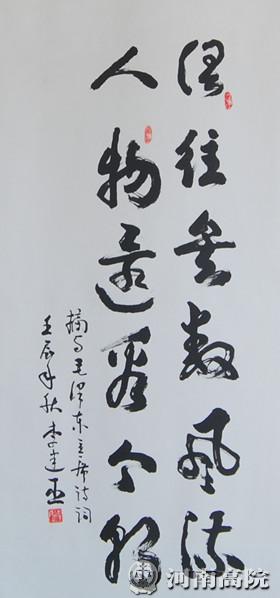 俱往矣數風流
人物還看今朝
摘自毛澤東主席詩詞
壬辰年秋
河南高院